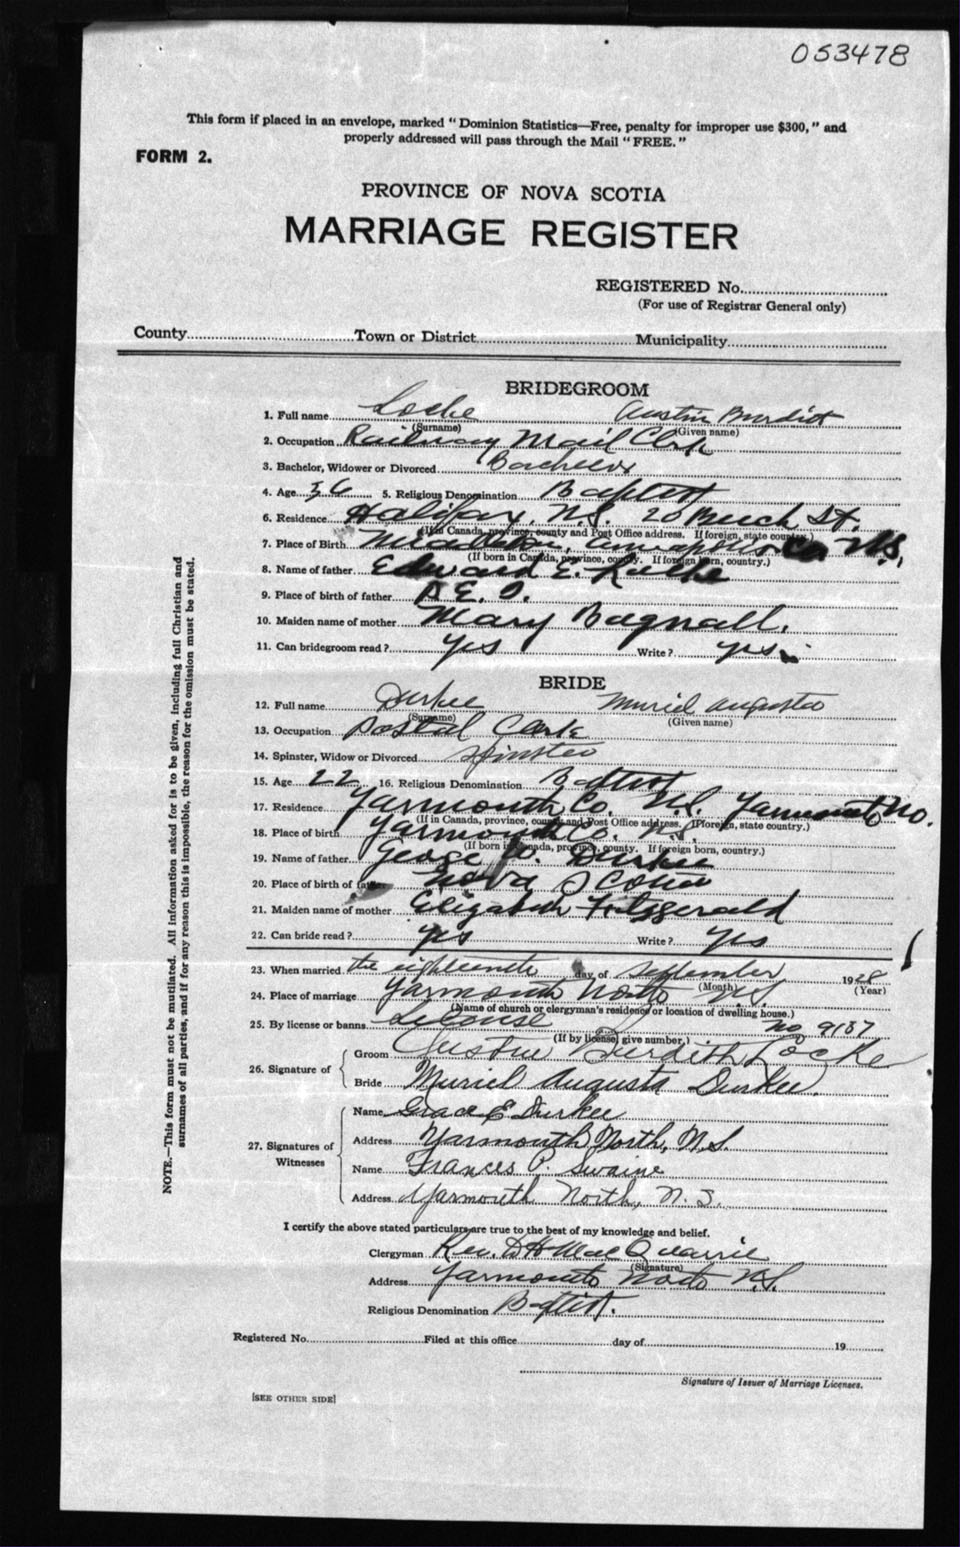 053478
This form if placed in an envelope, marked "Dominion Statistics—Free, penalty for improper use $300," and
properly addressed will pass through the Mail "FREE."
FORM 2.
PROVINCE OF NOVA SCOTIA
MARRIAGE REGISTER
REGISTERED No.
(For use of Registrar General only)
County Town or District Municipality
BRIDEGROOM
1. Full name Locke Austin Burdist
(Surname) (Given name)
2. Occupation Railway Mail Clerk
3. Bachelor, Widower or Divorced Bachelor
4. Age 36 5. Religious Denomination Baptist
6. Residence Halifax, N.S. 20 Beech St.
(If in Canada, province, county and Post Office address. If foreign, state country.)
7. Place of Birth Middleton, Annapolis Co N.S.
(If born in Canada, province, county. If foreign born, country.)
8. Name of father Edward E. Locke
9. Place of birth of father P.E.I.
10. Maiden name of mother Mary Bagnall.
11. Can bridegroom read? yes Write? yes
BRIDE
12. Full name Durkee Muriel Augusta
(Surname) (Given name)
13. Occupation Postal Clerk
14. Spinster, Widow or Divorced Spinster
15. Age 22 16. Religious Denomination Baptist
17. Residence Yarmouth Co. N.S. Yarmouth No.
(If in Canada, province, county and Post Office address. If foreign, state country.)
18. Place of birth Yarmouth Co. N.S.
(If born in Canada, province, county. If foreign born, country.)
19. Name of father George Durkee
20. Place of birth of father Nova Scotia
21. Maiden name of mother Elizabeth Fitzgerald
22. Can bride read? yes Write? yes
23. When married the eighteenth day of September 1928
(Month) (Year)
24. Place of marriage Yarmouth North N.S.
(Name of church or clergyman's residence or location of dwelling house.)
25. By license or banns License No 9137
(If by license, give number.)
26. Signature of
Groom Austin Burdith Locke
Bride Muriel Augusta Durkee
27. Signatures of Witnesses
Name Grace E Durkee
Address Yarmouth North, N.S.
Name Frances P. Swaine
Address Yarmouth North, N.S.
I certify the above stated particulars are true to the best of my knowledge and belief.
Clergyman Rev. D H MacQuarrie
(Signature)
Address Yarmouth North N.S.
Religious Denomination Baptist.
Registered No. Filed at this office day of 19
Signature of Issuer of Marriage Licenses.
[SEE OTHER SIDE]
NOTE.—This form must not be mutilated. All information asked for is to be given, including full Christian and
surnames of all parties, and if for any reason this is impossible, the reason for the omission must be stated.